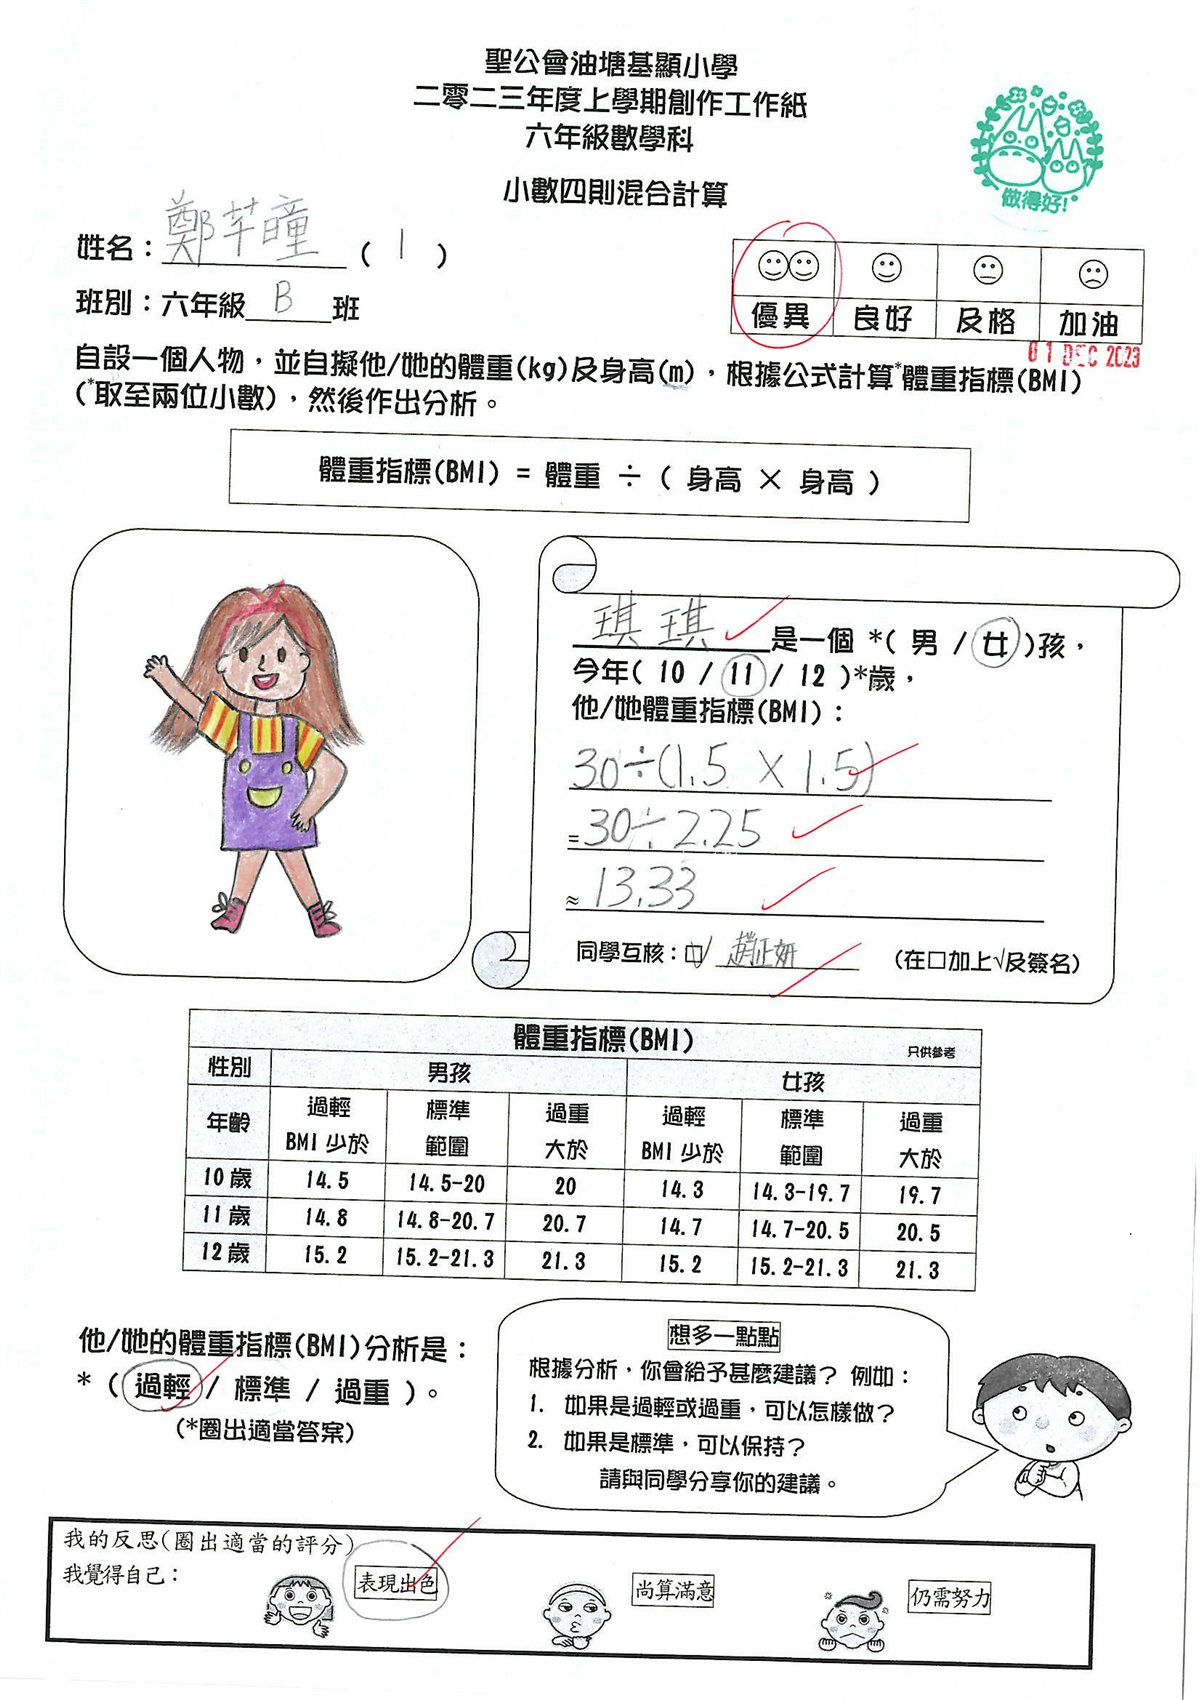 聖公會油塘基顯小學
二零二三年度上學期創作工作紙
六年級數學科
小數四則混合計算
做得好!
姓名：鄭芊瞳 ( 1 )
班別：六年級 B 班
優異 良好 及格 加油
01 DEC 2023
自設一個人物，並自擬他/她的體重(kg)及身高(m)，根據公式計算*體重指標(BMI)
(*取至兩位小數)，然後作出分析。
體重指標(BMI) = 體重 ÷ ( 身高 × 身高 )
琪琪 是一個 *( 男 / 女 )孩，
今年( 10 / 11 / 12 )*歲，
他/她體重指標(BMI)：
30÷(1.5 × 1.5)
=30÷2.25
≈13.33
同學互核：□√ 趙正妍 (在□加上√及簽名)
體重指標(BMI) 只供參考
性別 男孩 女孩
年齡 過輕 BMI 少於 標準範圍 過重大於 過輕 BMI 少於 標準範圍 過重大於
10 歲 14.5 14.5-20 20 14.3 14.3-19.7 19.7
11 歲 14.8 14.8-20.7 20.7 14.7 14.7-20.5 20.5
12 歲 15.2 15.2-21.3 21.3 15.2 15.2-21.3 21.3
他/她的體重指標(BMI)分析是：
* ( 過輕 / 標準 / 過重 )。
(*圈出適當答案)
想多一點點
根據分析，你會給予甚麼建議？ 例如：
1. 如果是過輕或過重，可以怎樣做？
2. 如果是標準，可以保持？
請與同學分享你的建議。
我的反思(圈出適當的評分)
我覺得自己：
表現出色 尚算滿意 仍需努力